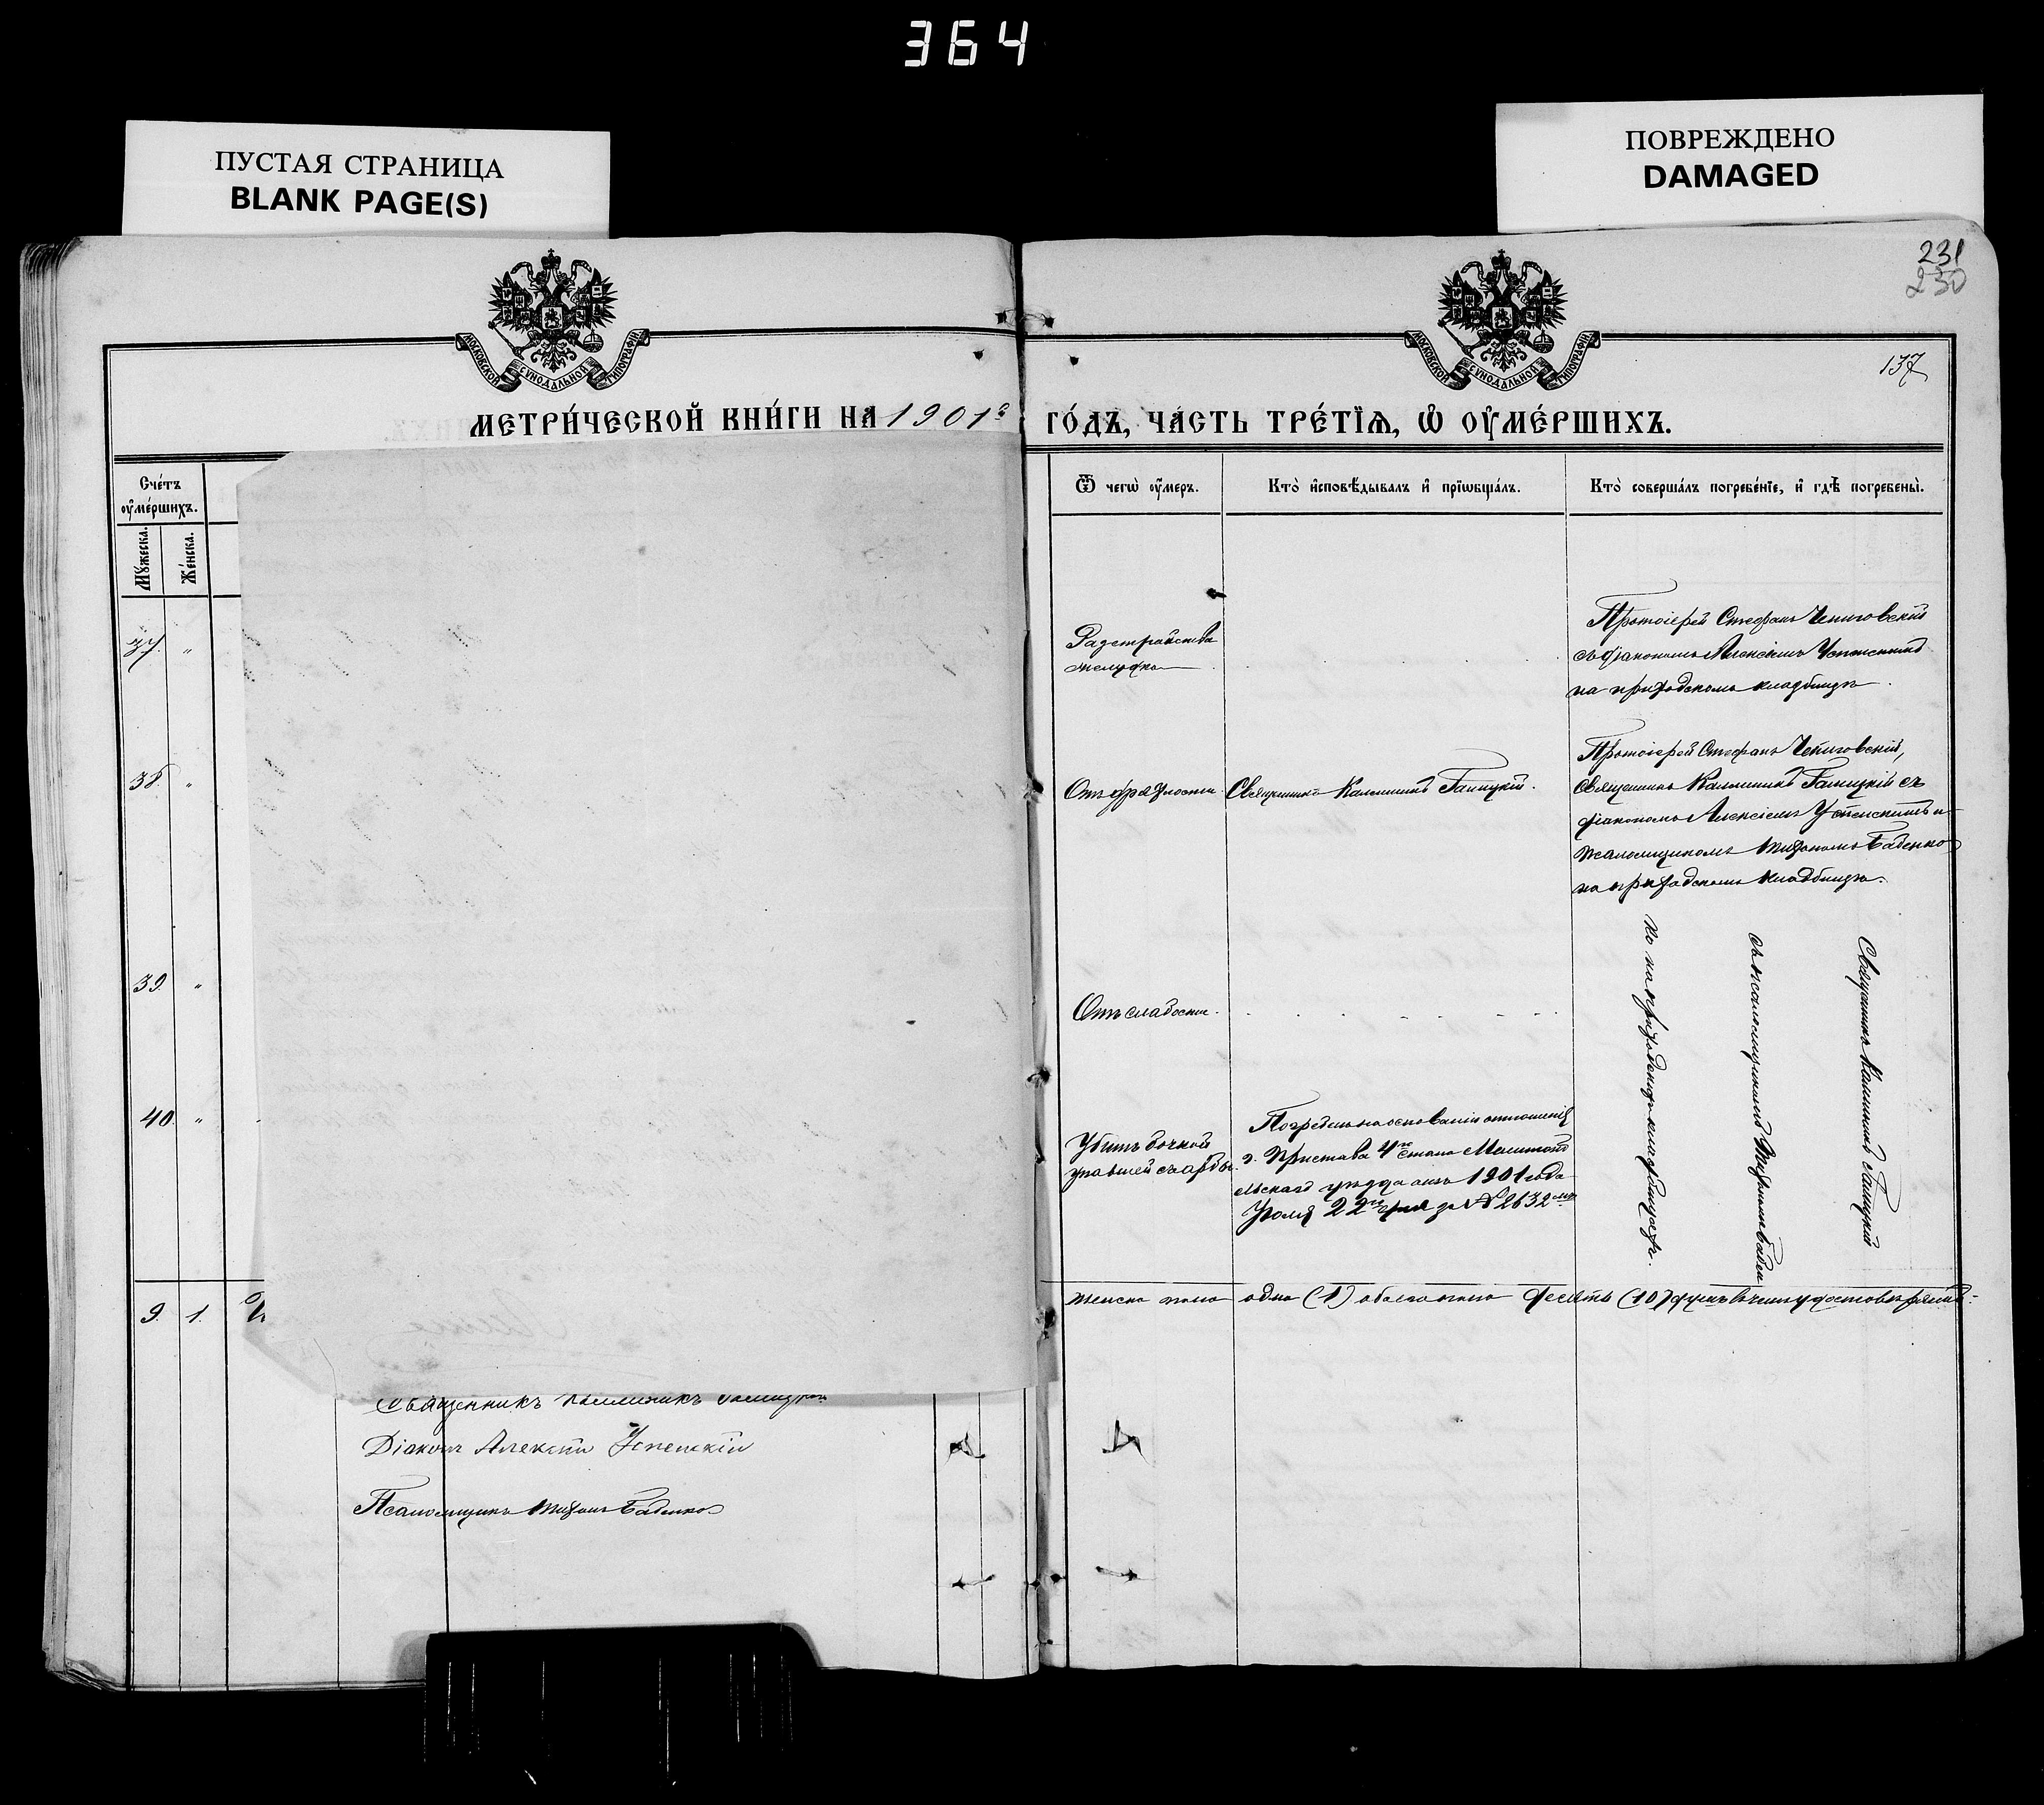 364
ПУСТАЯ СТРАНИЦА
BLANK PAGE(S)
ПОВРЕЖДЕНО
DAMAGED
231
230
МОСКОВСКОЙ СѴНОДАЛЬНОЙ ТИПОГРАФІИ
МОСКОВСКОЙ СѴНОДАЛЬНОЙ ТИПОГРАФІИ
137
МЕТРИ́ЧЕСКОЙ КНИ́ГИ НА 1901й
ГО́ДЪ, ЧА́СТЬ ТРЕ́ТЇѦ, Ѡ҆ ОУ҆МЕ́РШИХЪ.
Сче́тъ
оу҆ме́ршихъ.
Мꙋ́жеска.
Же́нска.
Ѿ чегѡ̀ оу҆́меръ.
Кто̀ и҆сповѣ́дывалъ и҆ прїѡбща́лъ.
Кто̀ соверша́лъ погребе́нїе, и҆ гдѣ̀ погребены̀.
37. "
Разстройства
желудка
Протоіерей Стефанъ Чепиговскій
съ діакономъ Алексіемъ Успенскимъ
на приходскомъ кладбищѣ.
38. "
Отъ дряхлости.
Священникъ Каллиникъ Галицкій.
Протоіерей Стефанъ Чепиговскій,
Священникъ Каллиникъ Галицкій съ
діакономъ Алексіемъ Успенскимъ и
псаломщикомъ Тихономъ Баденко
на приходскомъ кладбищѣ.
39. "
Отъ слабости.
Священникъ Каллиникъ Галицкій
съ псаломщикомъ Тихономъ Баден
ко на приходскомъ кладбищѣ.
40. "
Убитъ бочкой
упавшей съ арбы.
Погребенъ на основаніи отношенія
г. Пристава 4го стана Мелитопо
льскаго уѣзда отъ 1901 года
Іюля 22го дня за № 2632мъ
9. 1.
женска пола одна (1) обоего пола десять (10) душъ въ чемъ удостовѣряемъ:
Священникъ Каллиникъ Галицкій
Діаконъ Алексій Успенскій
Псаломщикъ Тихонъ Баденко